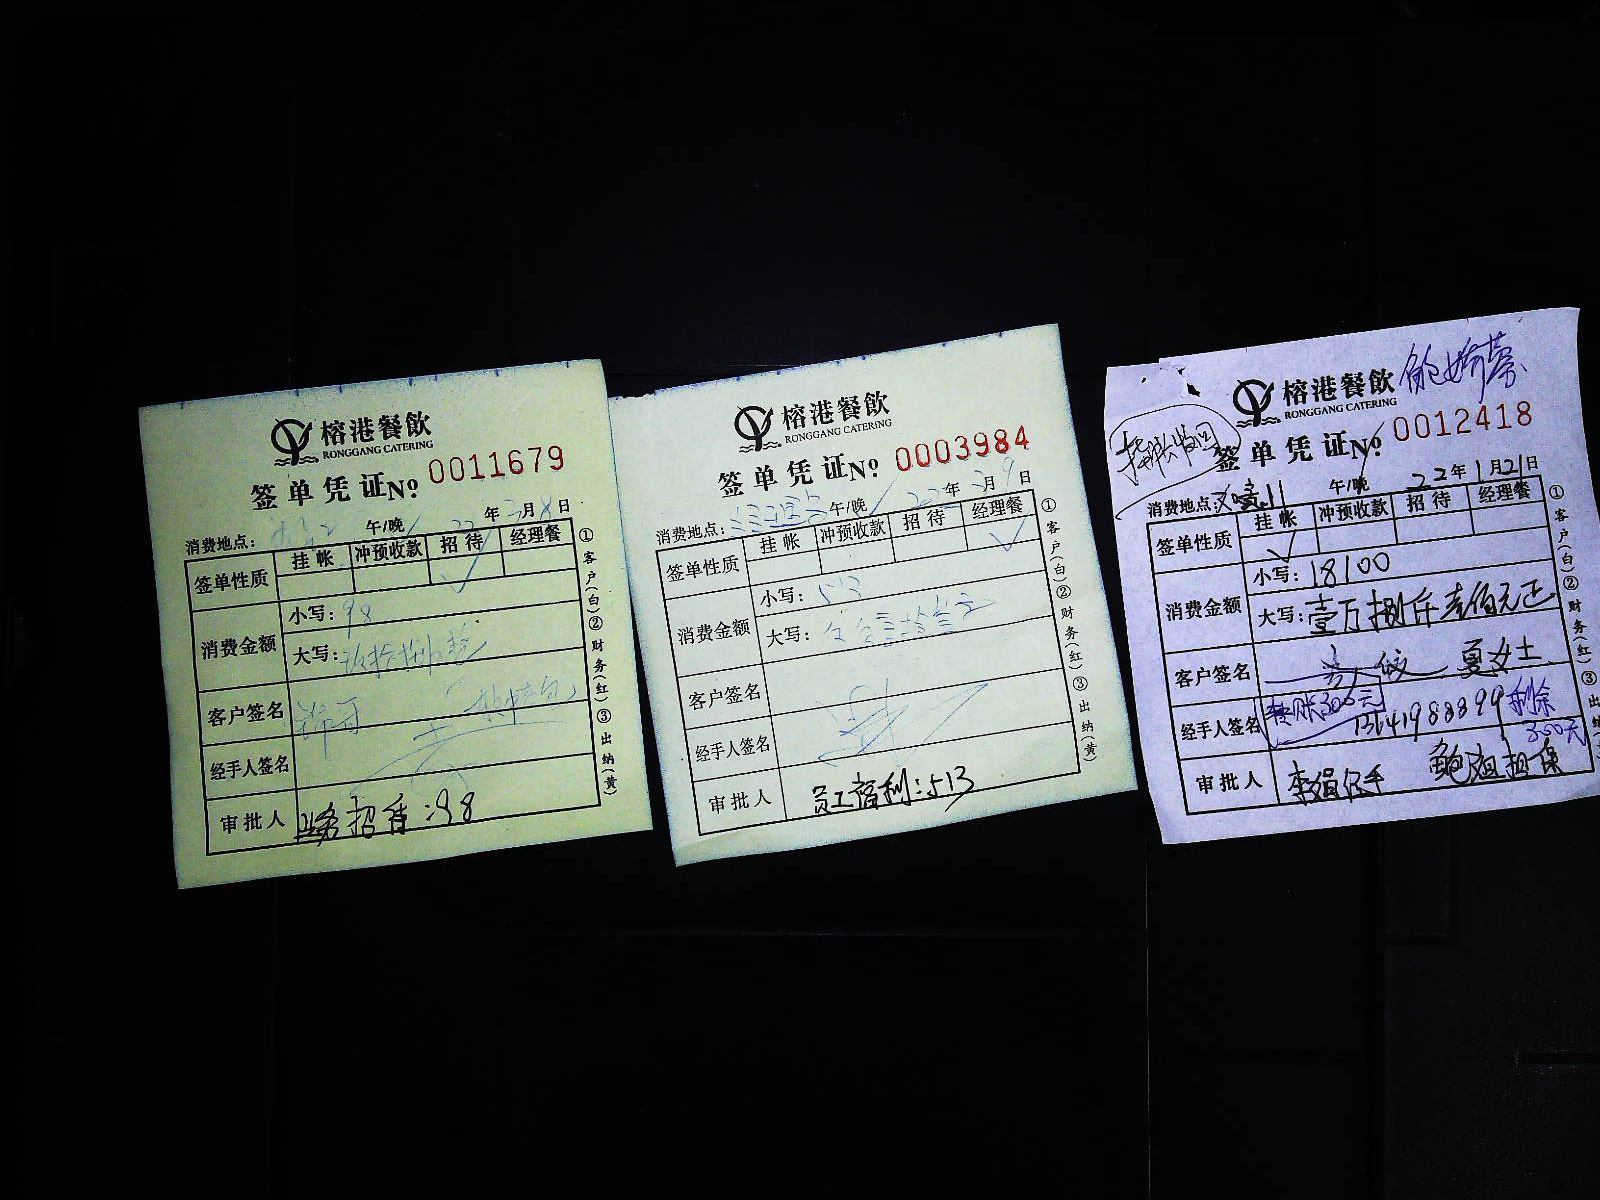 榕港餐飲
RONGGANG CATERING
签单凭证№ 0011679
消费地点: 午/晚 22年3月8日
签单性质 挂帐 冲预收款 招待 经理餐
✓
消费金额 小写: 98
大写:
客户签名
经手人签名
审批人 业务招待:98
①客户(白)②财务(红)③出纳(黄)
榕港餐飲
RONGGANG CATERING
签单凭证№ 0003984
消费地点: 午/晚 22年3月9日
签单性质 挂帐 冲预收款 招待 经理餐
✓
消费金额 小写: 513
大写:
客户签名
经手人签名
审批人 员工福利:513
①客户(白)②财务(红)③出纳(黄)
榕港餐飲
RONGGANG CATERING
签单凭证№ 0012418
消费地点: 午/晚 22年1月21日
签单性质 挂帐 冲预收款 招待 经理餐
✓
消费金额 小写: 18100
大写: 壹万捌仟壹佰元正
客户签名 夏女士
经手人签名 转账300元 13641988899 剩余
300元
审批人 鲍姐担保
①客户(白)②财务(红)③出纳(黄)